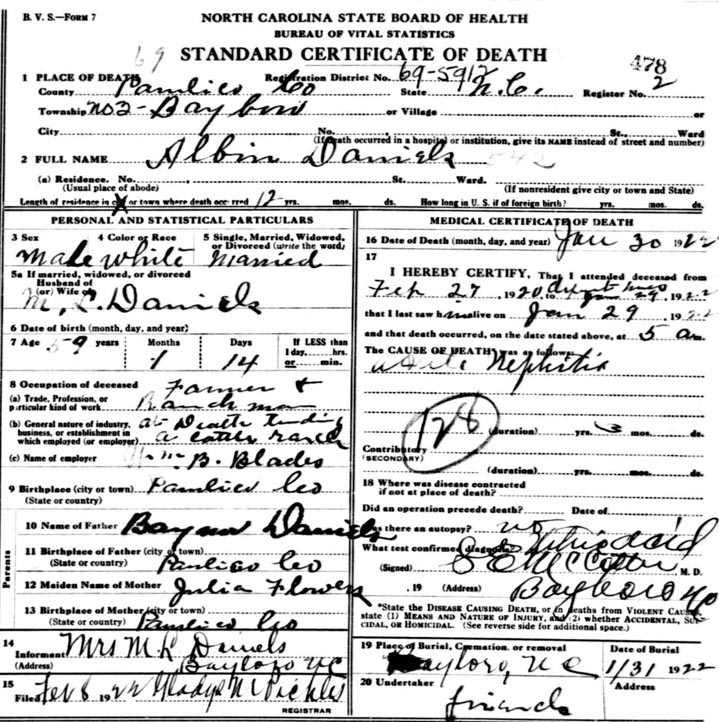 B. V. S.—FORM 7
NORTH CAROLINA STATE BOARD OF HEALTH
BUREAU OF VITAL STATISTICS
STANDARD CERTIFICATE OF DEATH
69
478
1 PLACE OF DEATH Registration District No. 69-5912 Register No. 2
County Pamlico Co State N.C.
Township No 2- Bayboro or Village or
City No. St. Ward
(If death occurred in a hospital or institution, give its NAME instead of street and number)
2 FULL NAME Albin Daniels 542
(a) Residence. No. St. Ward.
(Usual place of abode) (If nonresident give city or town and State)
Length of residence in city or town where death occurred 12 yrs. mos. ds. How long in U. S. if of foreign birth? yrs. mos. ds.
PERSONAL AND STATISTICAL PARTICULARS
3 Sex 4 Color or Race 5 Single, Married, Widowed, or Divorced (write the word)
Male White Married
5a If married, widowed, or divorced
Husband of
(or) Wife of M. L. Daniels
6 Date of birth (month, day, and year)
7 Age 59 years Months 1 Days 14 If LESS than 1 day, hrs. or min.
8 Occupation of deceased
(a) Trade, Profession, or particular kind of work Farmer & Ranch man
(b) General nature of industry, business, or establishment in which employed (or employer) at Death tending a cattle ranch
(c) Name of employer B. Blades
9 Birthplace (city or town) Pamlico Co
(State or country)
Parents
10 Name of Father Baynor Daniels
11 Birthplace of Father (city or town)
(State or country) Pamlico Co
12 Maiden Name of Mother Julia Flowers
13 Birthplace of Mother (city or town)
(State or country) Pamlico Co
14 Informant Mrs M L Daniels
(Address) Bayboro NC
15 Filed Feb 8 1922 Gladys McPickles
REGISTRAR
MEDICAL CERTIFICATE OF DEATH
16 Date of Death (month, day, and year) Jan 30 1922
17
I HEREBY CERTIFY, That I attended deceased from
Feb 27, 1920 to Jan 29, 1922
that I last saw him alive on Jan 29 1922
and that death occurred, on the date stated above, at 5 am.
The CAUSE OF DEATH was as follows:
Nephritis
128
(duration) yrs. 3 mos. ds.
Contributory
(SECONDARY)
(duration) yrs. mos. ds.
18 Where was disease contracted
if not at place of death?
Did an operation precede death? Date of
Was there an autopsy? no
What test confirmed diagnosis?
(Signed) M. D.
, 19 (Address) Bayboro NC
*State the DISEASE CAUSING DEATH, or in deaths from VIOLENT CAUSES,
state (1) MEANS AND NATURE OF INJURY, and (2) whether ACCIDENTAL, SUI-
CIDAL, or HOMICIDAL. (See reverse side for additional space.)
19 Place of Burial, Cremation, or removal Date of Burial
Bayboro, N C 1/31 1922
20 Undertaker Address
Friends